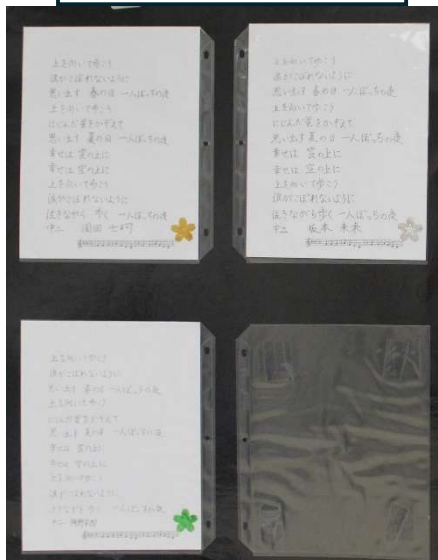 上を向いて歩こう
涙がこぼれないように
思い出す 春の日 一人ぼっちの夜
上を向いて歩こう
にじんだ星をかぞえて
思い出す 夏の日 一人ぼっちの夜
幸せは 雲の上に
幸せは 空の上に
上を向いて歩こう
涙がこぼれないように
泣きながら 歩く 一人ぼっちの夜
中二
上を向いて歩こう
涙がこぼれないように
思い出す 春の日 一人ぼっちの夜
上を向いて歩こう
にじんだ星をかぞえて
思い出す 夏の日 一人ぼっちの夜
幸せは 雲の上に
幸せは 空の上に
上を向いて歩こう
涙がこぼれないように
泣きながら歩く 一人ぼっちの夜
中二 坂本 未来
上を向いて歩こう
涙がこぼれないように
思い出す 春の日 一人ぼっちの夜
上を向いて歩こう
にじんだ星をかぞえて
思い出す 夏の日 一人ぼっちの夜
幸せは 雲の上に
幸せは 空の上に
上を向いて歩こう
涙がこぼれないように
歩く 一人ぼっちの夜
中二